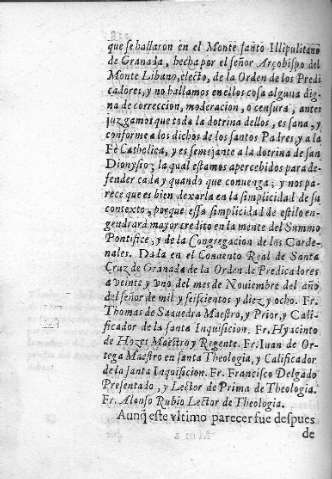 que se hallaron en el Monte santo Illipulitano
de Granada, hecha por el señor Arçobispo del
Monte Libano, electo, de la Orden de los Predi
cadores, y no hallamos en ellos cosa alguna dig-
na de correccion, moderacion, o censura, antes
juzgamos que toda la dotrina dellos, es sana, y
conforme a los dichos de los santos Padres, y a la
Fè Catholica, y es semejante a la dotrina de san
Dionysio; la qual estamos apercebidos para de-
fender cada y quando que conuenga; y nos pa-
rece que es bien dexarla en la simplicidad de su
contexto, porque essa simplicidad de estilo en-
gendrarà mayor credito en la mente del Summo
Pontifice, y de la Congregacion de los Carde-
nales. Dada en el Conuento Real de Santa
Cruz de Granada de la Orden de Predicadores
a veinte y vno del mes de Nouiembre del año
del señor de mil y seiscientos y diez y ocho. Fr.
Thomas de Saauedra Maestro, y Prior, y Cali-
ficador de la santa Inquisicion. Fr. Hyacinto
de Hozes Maestro y Regente. Fr. Iuan de Or-
tega Maestro en santa Theologia, y Calificador
de la santa Inquisicion. Fr. Francisco Delgado
Presentado, y Lector de Prima de Theologia.
Fr. Alonso Rubio Lector de Theologia.
Aunq̃ este vltimo parecer fue despues
de